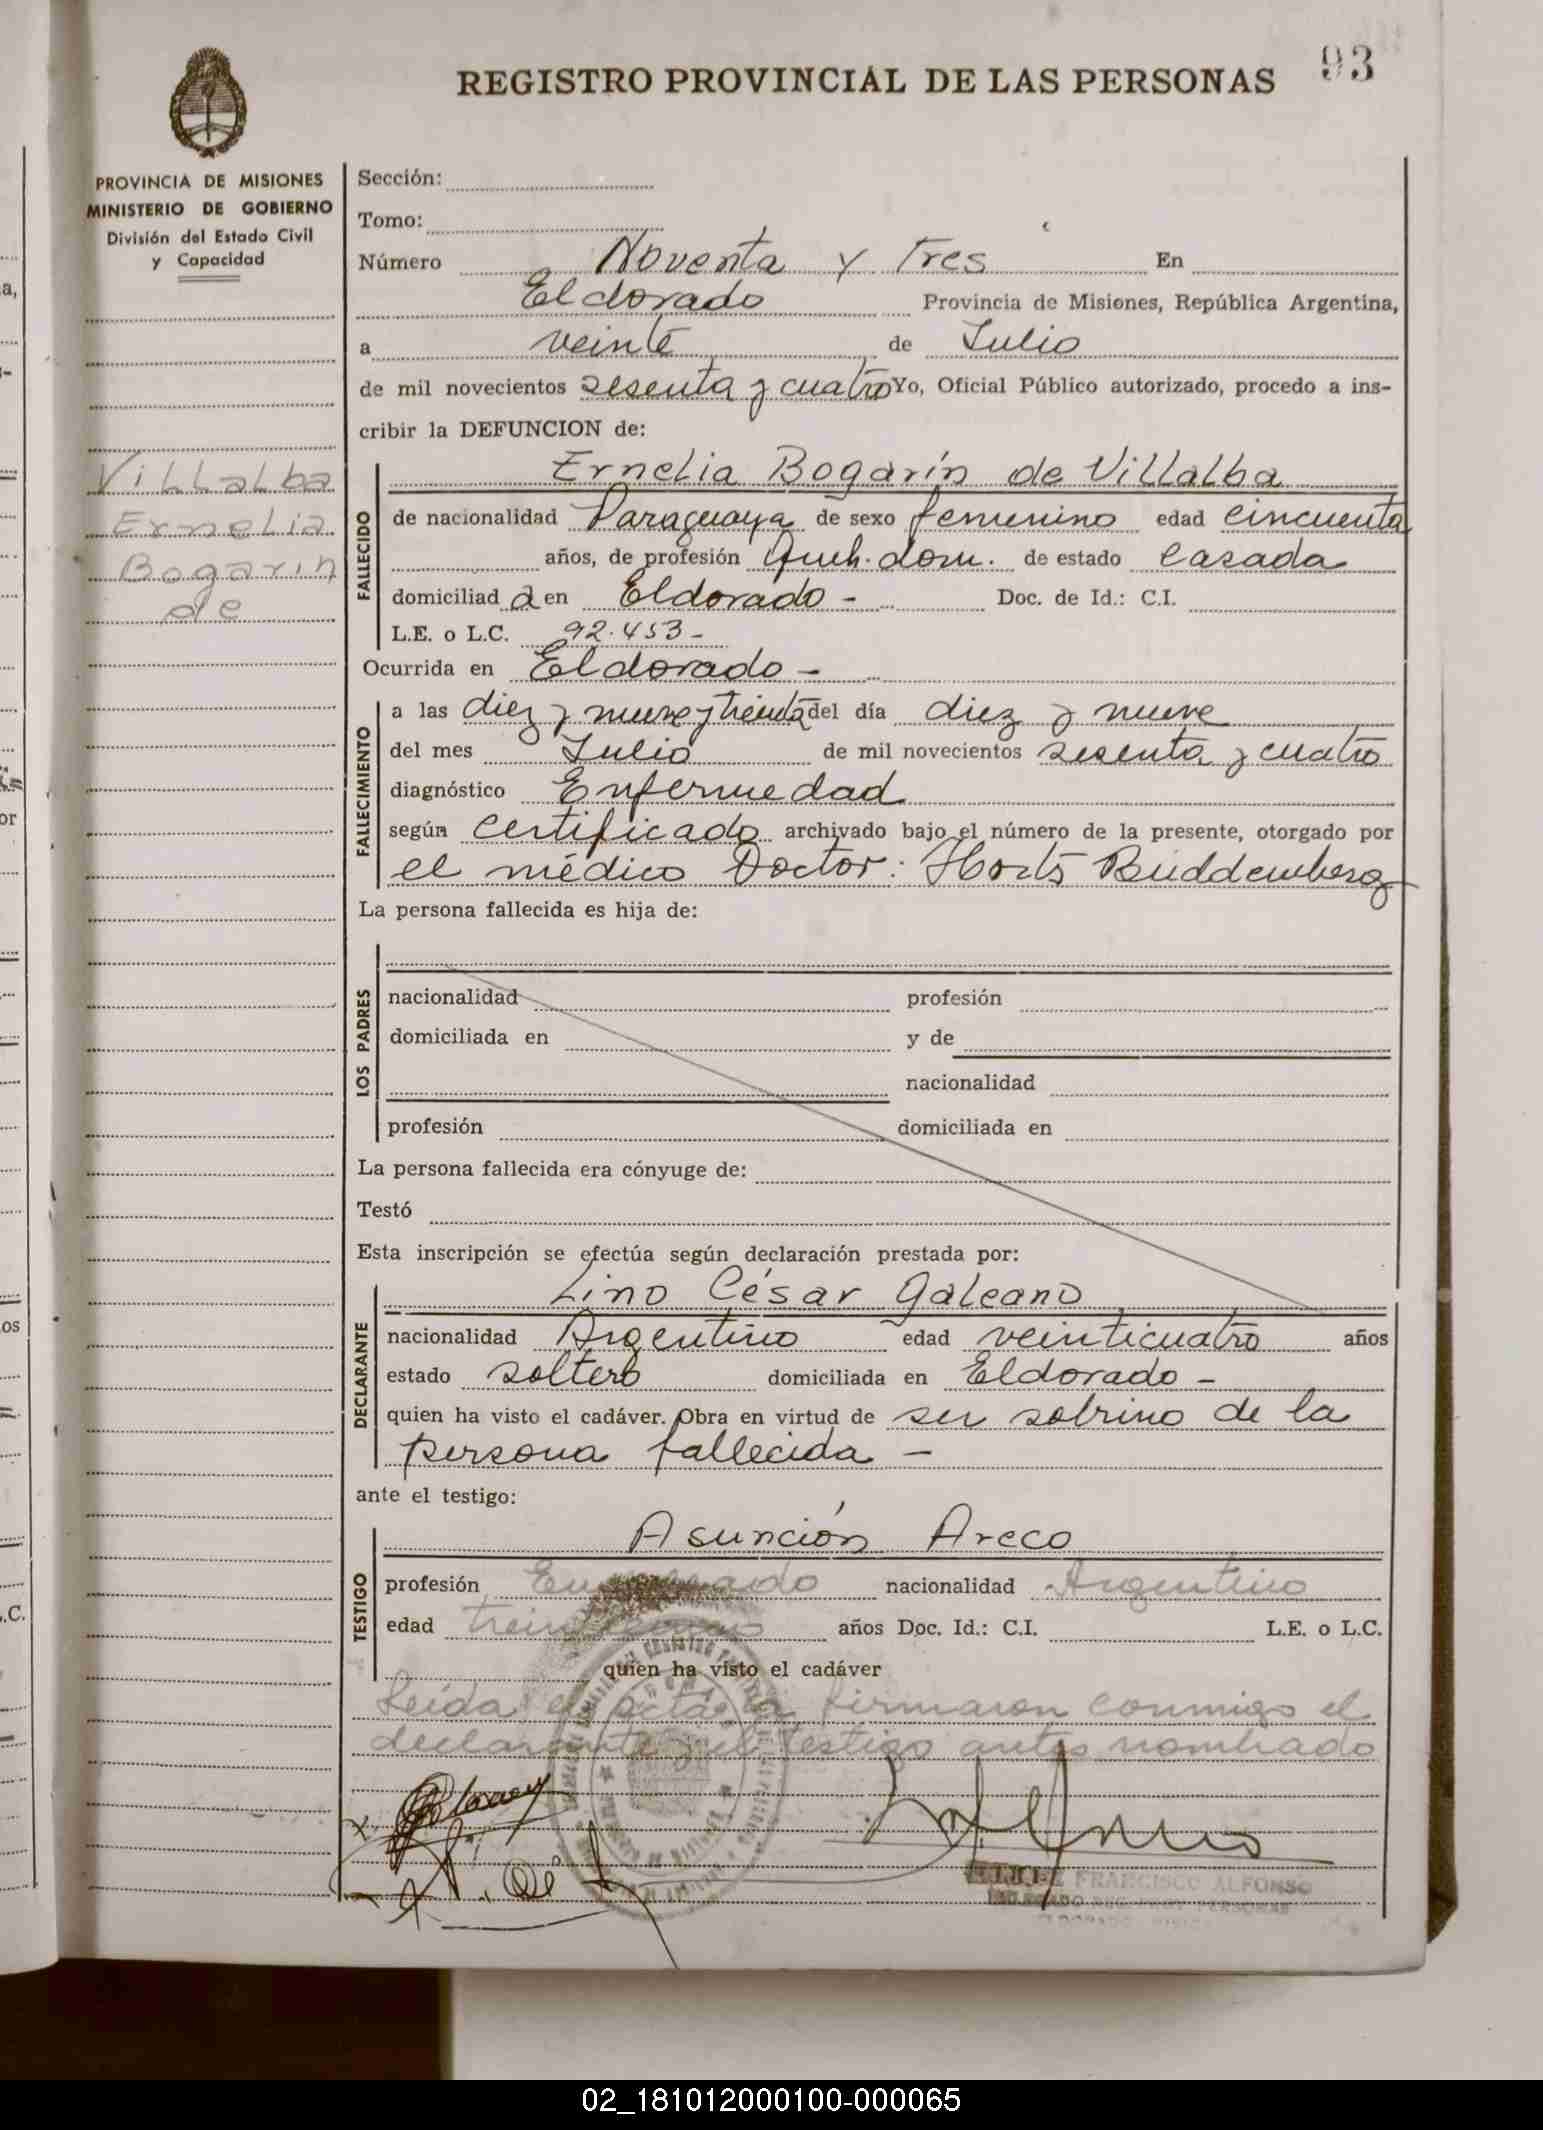 93
REGISTRO PROVINCIAL DE LAS PERSONAS
PROVINCIA DE MISIONES
MINISTERIO DE GOBIERNO
División del Estado Civil
y Capacidad
Villalba
Ernelia
Bogarin
de
Sección:
Tomo:
Número Noventa y Tres En
Eldorado Provincia de Misiones, República Argentina,
a veinte de Julio
de mil novecientos sesenta y cuatro Yo, Oficial Público autorizado, procedo a ins-
cribir la DEFUNCION de:
FALLECIDO
Ernelia Bogarín de Villalba
de nacionalidad Paraguaya de sexo femenino edad cincuenta
años, de profesión Queh. dom. de estado casada
domiciliad a en Eldorado - Doc. de Id.: C.I.
L.E. o L.C. 92.453-
Ocurrida en Eldorado -
FALLECIMIENTO
a las diez y nueve y treinta del día diez y nueve
del mes Julio de mil novecientos sesenta y cuatro
diagnóstico Enfermedad
según certificado archivado bajo el número de la presente, otorgado por
el médico Doctor: Horts Buddemberg
La persona fallecida es hija de:
LOS PADRES
nacionalidad profesión
domiciliada en y de
nacionalidad
profesión domiciliada en
La persona fallecida era cónyuge de:
Testó
Esta inscripción se efectúa según declaración prestada por:
DECLARANTE
Lino César Galeano
nacionalidad Argentino edad veinticuatro años
estado soltero domiciliada en Eldorado -
quien ha visto el cadáver. Obra en virtud de ser sobrino de la
persona fallecida -
ante el testigo:
TESTIGO
Asunción Areco
profesión Empleado nacionalidad Argentino
edad años Doc. Id.: C.I. L.E. o L.C.
quien ha visto el cadáver
Leida el acta la firmaron conmigo el
declarante y el testigo antes nombrado
FRANCISCO ALFONSO
DELEGADO REG. PROV. PERSONAS
02_181012000100-000065